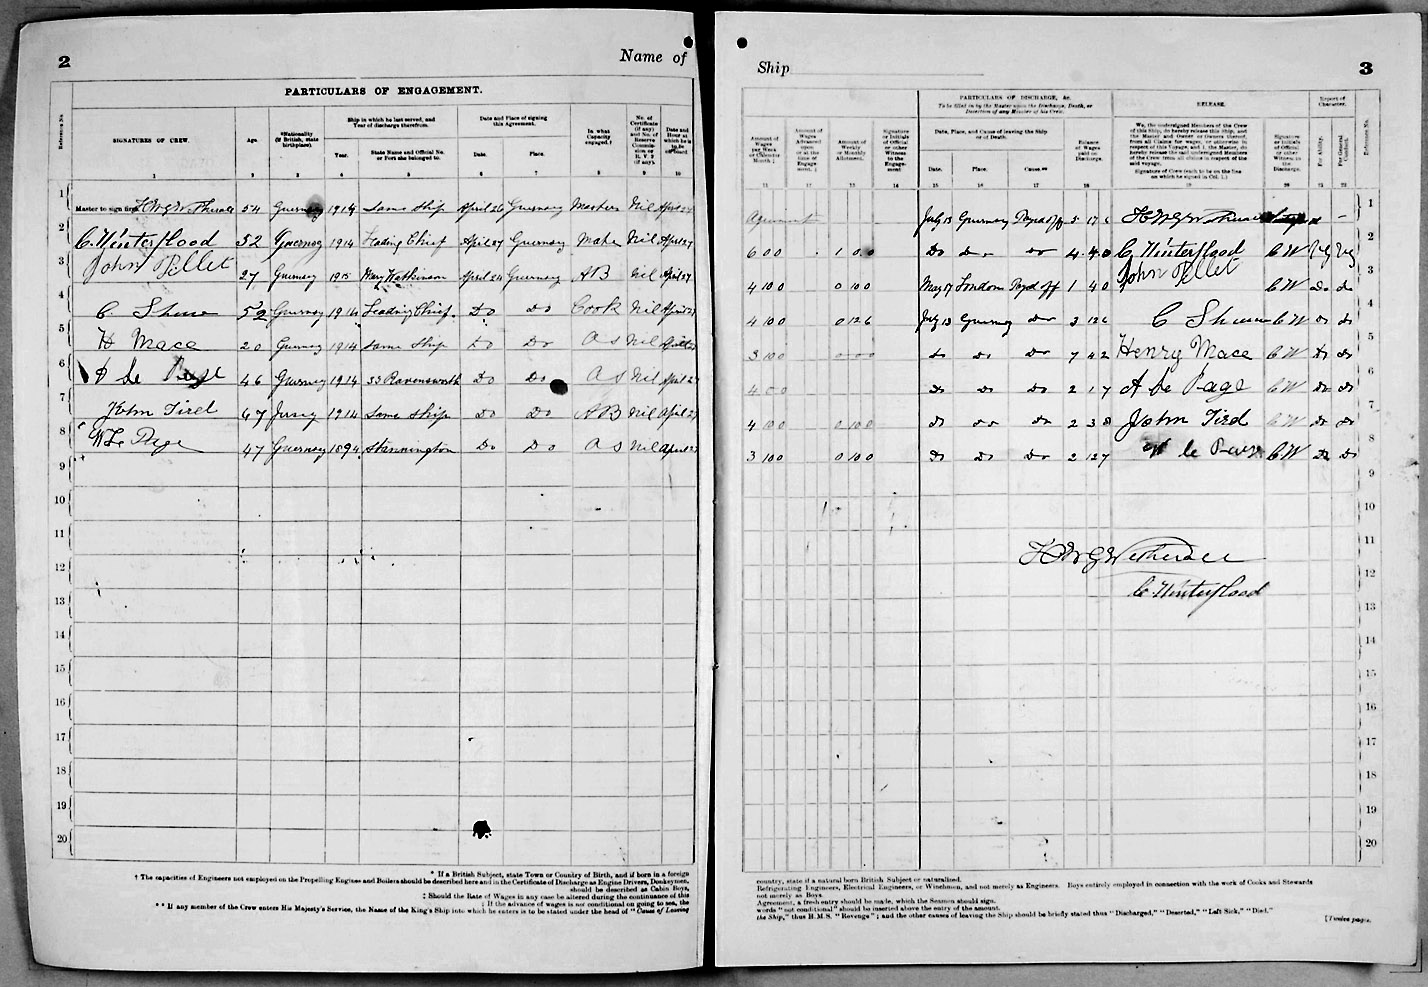 2
Name of
PARTICULARS OF ENGAGEMENT.
Reference No.
SIGNATURES OF CREW.
Age.
*Nationality (If British, state birthplace).
Ship in which he last served, and Year of discharge therefrom.
Year.
State Name and Official No. or Port she belonged to.
Date and Place of signing this Agreement.
Date.
Place.
In what Capacity engaged.†
No. of Certificate (if any) and No. of Reserve Commission or R.V. 2 (if any).
Date and Hour at which he is to be on board
1 2 3 4 5 6 7 8 9 10
1 Master to sign first 54 Guernsey 1914 Same Ship April 26 Guernsey Master Nil April
2 C. Winterflood 52 Guernsey 1914 Leading Chief April 27 Guernsey Mate Nil April 27
3 John Pillet 27 Guernsey 1915 Mary Watkinson April 24 Guernsey AB Nil April 27
4 C 52 Guernsey 1914 Leading Chief. Do Do Cook Nil April 27
5 H Mace 20 Guernsey 1914 Same Ship Do Do O S Nil April
6 le Page 46 Guernsey 1914 SS Ravensworth Do Do O S Nil April 27
7 John Tird 47 Jersey 1914 Same Ship Do Do AB Nil April 27
8 W Le Page 47 Guernsey 1894 Stannington Do Do O S Nil April 27
9
10
11
12
13
14
15
16
17
18
19
20
* If a British Subject, state Town or Country of Birth, and if born in a foreign
† The capacities of Engineers not employed on the Propelling Engines and Boilers should be described here and in the Certificate of Discharge as Engine Drivers, Donkeymen,
should be described as Cabin Boys,
‡ Should the Rate of Wages in any case be altered during the continuance of this
; If the advance of wages is not conditional on going to sea, the
** If any member of the Crew enters His Majesty's Service, the Name of the King's Ship into which he enters is to be stated under the head of "Cause of Leaving
Ship
3
PARTICULARS OF DISCHARGE, &c.
To be filled in by the Master upon the Discharge, Death, or Desertion of any Member of his Crew.
RELEASE.
Report of Character.
Amount of Wages per Week or Calendar Month ‡
Amount of Wages Advanced upon or at the time of Engagement. ‡
Amount of Weekly or Monthly Allotment.
Signature or Initials of Official or other Witness to the Engagement
Date, Place, and Cause of leaving the Ship or of Death.
Date.
Place.
Cause.**
Balance of Wages paid on Discharge.
We, the undersigned Members of the Crew of this Ship, do hereby release this Ship, and the Master and Owner or Owners thereof, from all Claims for wages, or otherwise in respect of this Voyage, and I, the Master, do hereby release the undersigned Members of the Crew from all claims in respect of the said voyage.
Signature of Crew (each to be on the line on which he signed in Col. 1.)
Signature or Initials of Official or other Witness to the Discharge.
For Ability.
For General Conduct.
Reference No.
11 12 13 14 15 16 17 18 19 20 21 22
Agreement July 13 Guernsey Payed off 5 17 6 – 1
6 0 0 1 0 0 Do Do Do 4 4 0 C. Winterflood CW Vg Vg 2
4 10 0 0 10 0 May 17 London Payd off 1 4 0 John Pillet CW do do 3
4 10 0 0 12 6 July 13 Guernsey do 3 12 6 C CW do do 4
3 10 0 0 0 0 do do do 7 4 2 Henry Mace CW do do 5
4 0 0 do do do 2 1 7 A Le Page CW do do 6
4 10 0 0 10 0 do do do 2 3 8 John Tird CW do do 7
3 10 0 0 10 0 do do do 2 12 7 le Page CW do do 8
9
10
11
12
C. Winterflood
13
14
15
16
17
18
19
20
country, state if a natural born British Subject or naturalised.
Refrigerating Engineers, Electrical Engineers, or Winchmen, and not merely as Engineers. Boys entirely employed in connection with the work of Cooks and Stewards
not merely as Boys.
Agreement, a fresh entry should be made, which the Seamen should sign.
words "not conditional" should be inserted above the entry of the amount.
the Ship," thus H.M.S. "Revenge"; and the other causes of leaving the Ship should be briefly stated thus "Discharged," "Deserted," "Left Sick," "Died."
[Twelve pages.